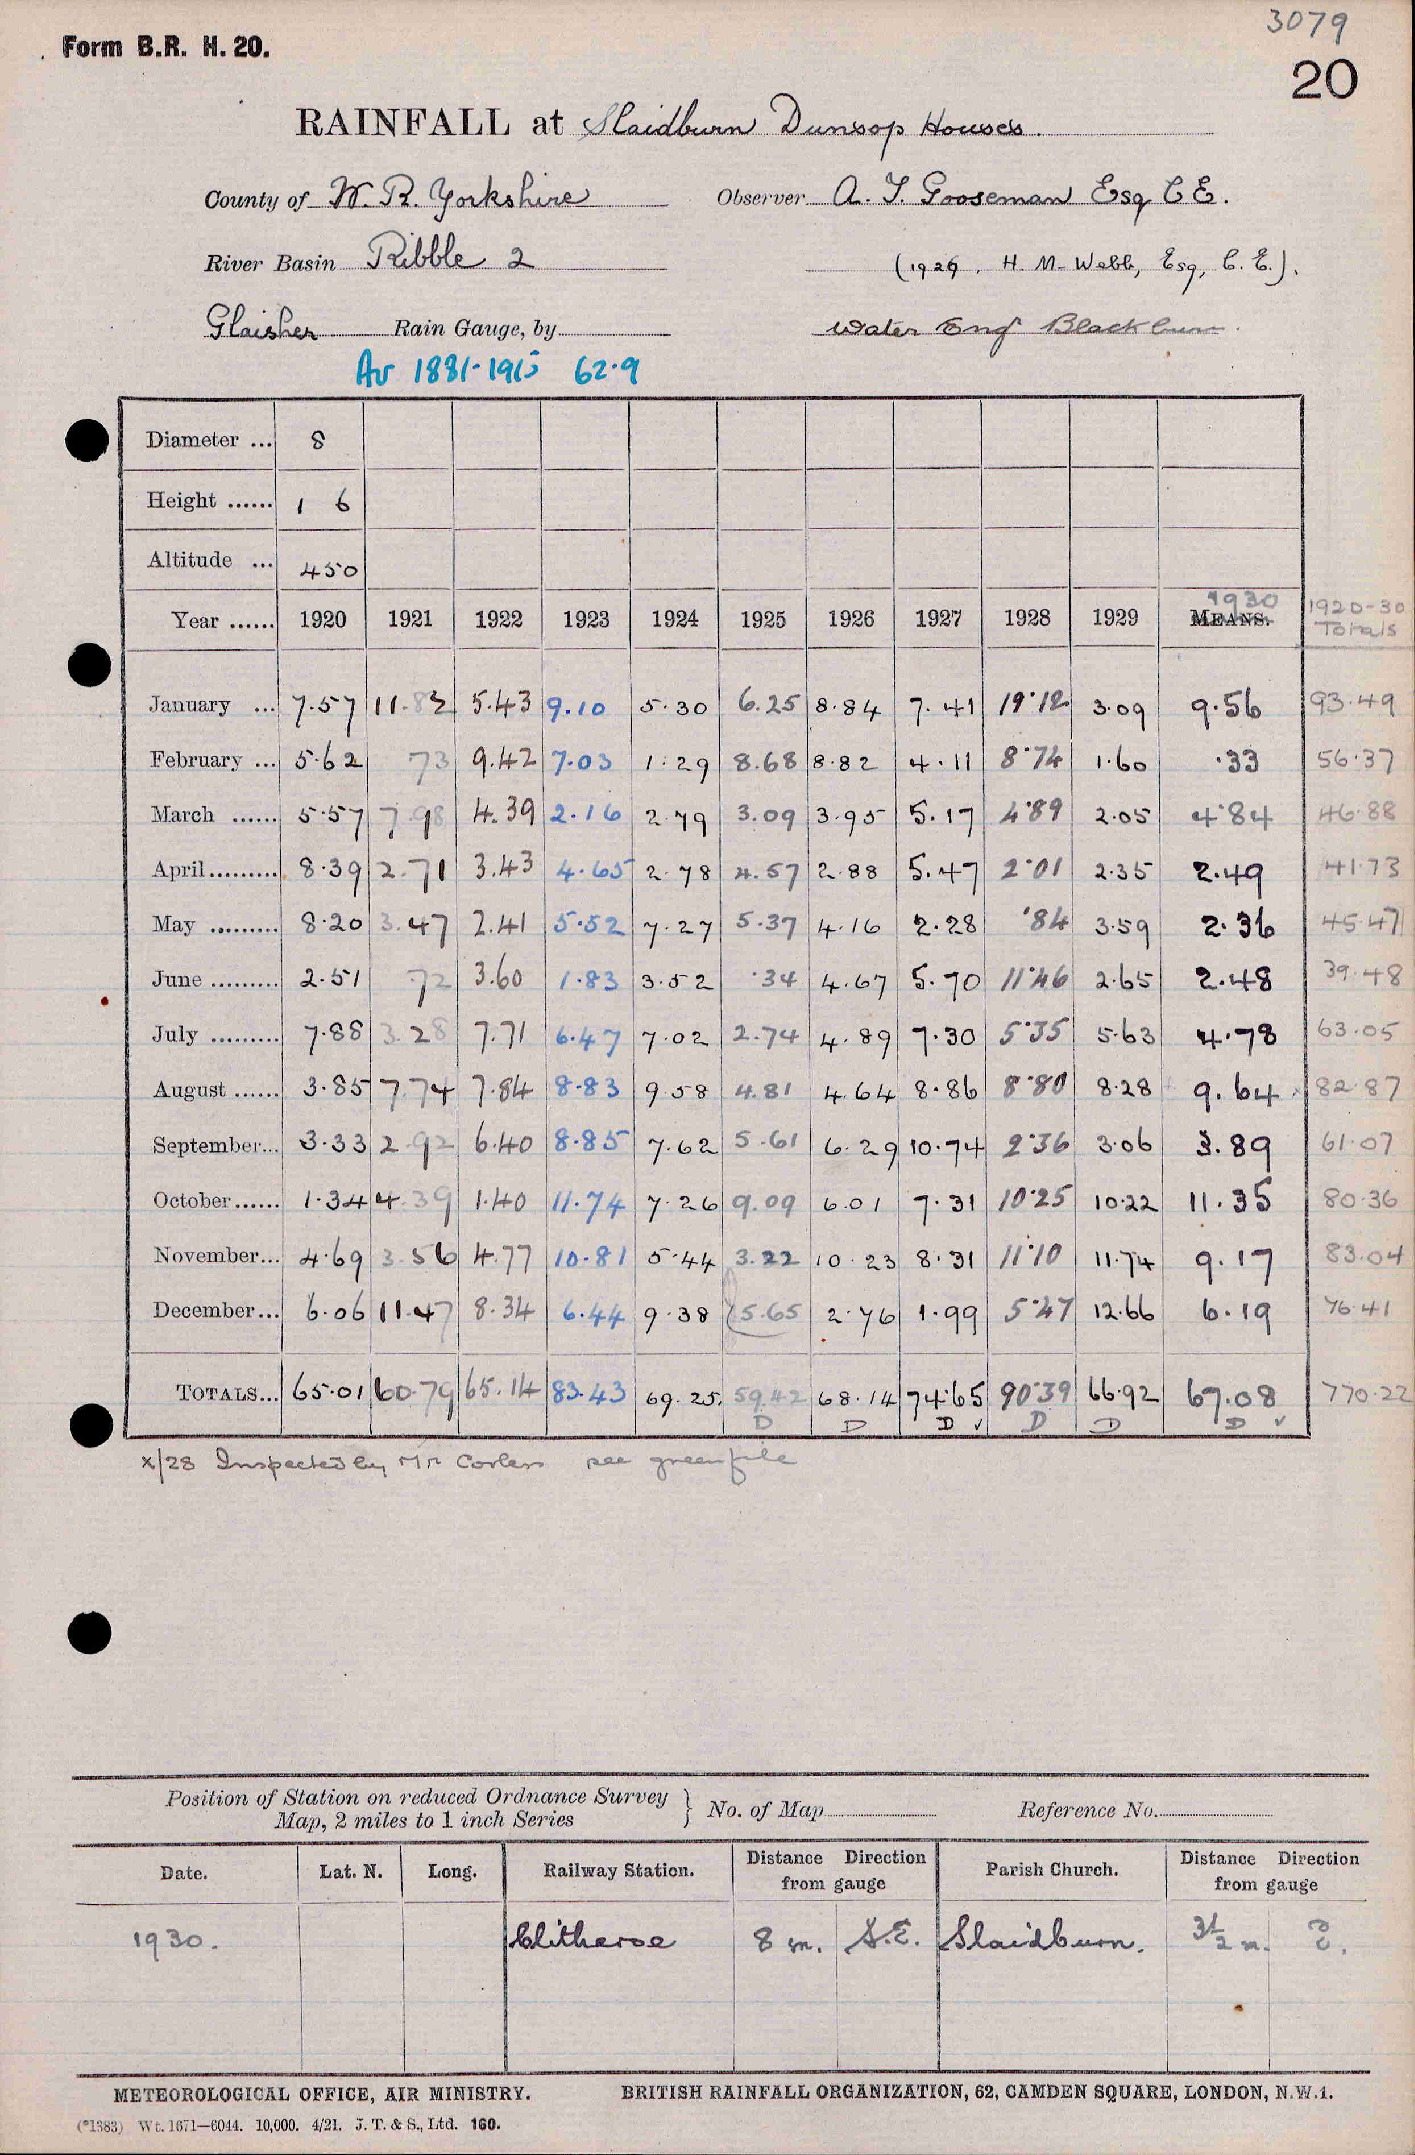 3079
Form B.R. H. 20.
20
RAINFALL at Slaidburn Dunsop Houses.
County of W. R. Yorkshire Observer A. T. Gooseman Esq C E.
River Basin Ribble 2 (1929. H. M. Webb, Esq, C. E.).
Glaisher Rain Gauge, by Water Engr Blackburn.
Av 1881-1915 62.9
Diameter ... 8
Height ...... 1 6
Altitude ... 450
Year ...... 1920 1921 1922 1923 1924 1925 1926 1927 1928 1929 MEANS. 1930 1920-30 Totals
January ... 7.57 11.82 5.43 9.10 5.30 6.25 8.84 7.41 19.12 3.09 9.56 93.49
February ... 5.62 73 9.42 7.03 1.29 8.68 8.82 4.11 8.74 1.60 .33 56.37
March ...... 5.57 7.98 4.39 2.16 2.79 3.09 3.95 5.17 4.89 2.05 4.84 46.88
April......... 8.39 2.71 3.43 4.65 2.78 4.57 2.88 5.47 2.01 2.35 2.49 41.73
May ......... 8.20 3.47 2.41 5.52 7.27 5.37 4.16 2.28 .84 3.59 2.36 45.47
June ......... 2.51 72 3.60 1.83 3.52 .34 4.67 5.70 11.46 2.65 2.48 39.48
July ......... 7.88 3.28 7.71 6.47 7.02 2.74 4.89 7.30 5.35 5.63 4.78 63.05
August ...... 3.85 7.74 7.84 8.83 9.58 4.81 4.64 8.86 8.80 8.28 9.64 82.87
September... 3.33 2.92 6.40 8.85 7.62 5.61 6.29 10.74 2.36 3.06 3.89 61.07
October...... 1.34 4.39 1.40 11.74 7.26 9.09 6.01 7.31 10.25 10.22 11.35 80.36
November... 4.69 3.56 4.77 10.81 5.44 3.22 10.23 8.31 11.10 11.74 9.17 83.04
December... 6.06 11.47 8.34 6.44 9.38 5.65 2.76 1.99 5.47 12.66 6.19 76.41
TOTALS... 65.01 60.79 65.14 83.43 69.25 59.42 68.14 74.65 90.39 66.92 67.08 770.22
D D D ✓ D D D ✓
x/28 Inspected by Mr Corless see green file
Position of Station on reduced Ordnance Survey
Map, 2 miles to 1 inch Series } No. of Map Reference No.
Date. Lat. N. Long. Railway Station. Distance Direction from gauge Parish Church. Distance Direction from gauge
1930. Clitheroe 8 m. S.E. Slaidburn. 3½ m. E.
METEOROLOGICAL OFFICE, AIR MINISTRY. BRITISH RAINFALL ORGANIZATION, 62, CAMDEN SQUARE, LONDON, N.W.1.
(*1383) Wt. 1671—6044. 10,000. 4/21. J. T. & S., Ltd. 160.